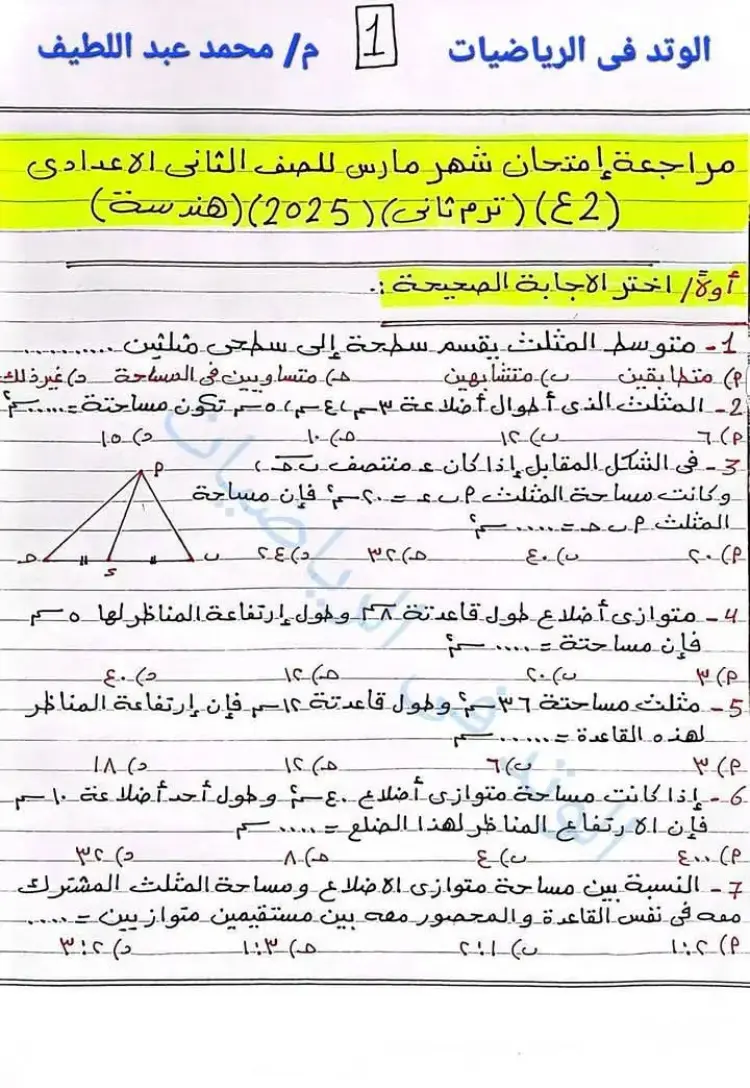 الوتد فى الرياضيات 1 م/ محمد عبد اللطيف
مراجعة إمتحان شهر مارس للصف الثانى الاعدادى
(2ع) (ترم ثانى) (2025) (هندسة)
أولاً/ اختر الاجابة الصحيحة :.
1- متوسط المثلث يقسم سطحة إلى سطحى مثلثين ...........
م) متطابقين ب) متتشابهين حـ) متساويين فى المساحة د) غير ذلك
2- المثلث الذى أطوال أضلاعة ٣سم، ٤سم، ٥سم تكون مساحتة = ..... سم٢
م) ٦ ب) ١٢ حـ) ١٠ د) ١٥
3- فى الشكل المقابل إذا كان ء منتصف ب حـ ،
وكانت مساحة المثلث م ب ء = ٢٠سم٢ فإن مساحة
المثلث م ب حـ = .... سم٢
م) ٢٠ ب) ٤٠ حـ) ٣٢ د) ٢٤
م
ب
ء
حـ
4- متوازى أضلاع طول قاعدتة ٨سم وطول إرتفاعة المناظر لها ٥سم
فإن مساحتة = .... سم٢
م) ٣ ب) ٢٠ حـ) ١٢ د) ٤٠
5- مثلث مساحتة ٣٦سم٢ وطول قاعدتة ١٢سم فإن إرتفاعة المناظر
لهذه القاعدة = ...... سم
م) ٣ ب) ٦ حـ) ١٢ د) ١٨
6- إذا كانت مساحة متوازى أضلاع ٤٠سم٢ وطول أحد أضلاعة ١٠سم
فإن الارتفاع المناظر لهذا الضلع = .... سم
م) ٤٠٠ ب) ٤ حـ) ٨ د) ٣٢
7- النسبة بين مساحة متوازى الاضلاع ومساحة المثلث المشترك
معه فى نفس القاعدة والمحصور معه بين مستقيمين متوازيين = .....
م) ١:٢ ب) ٢:١ حـ) ١:٣ د) ٣:٢
الوتد فى الرياضيات